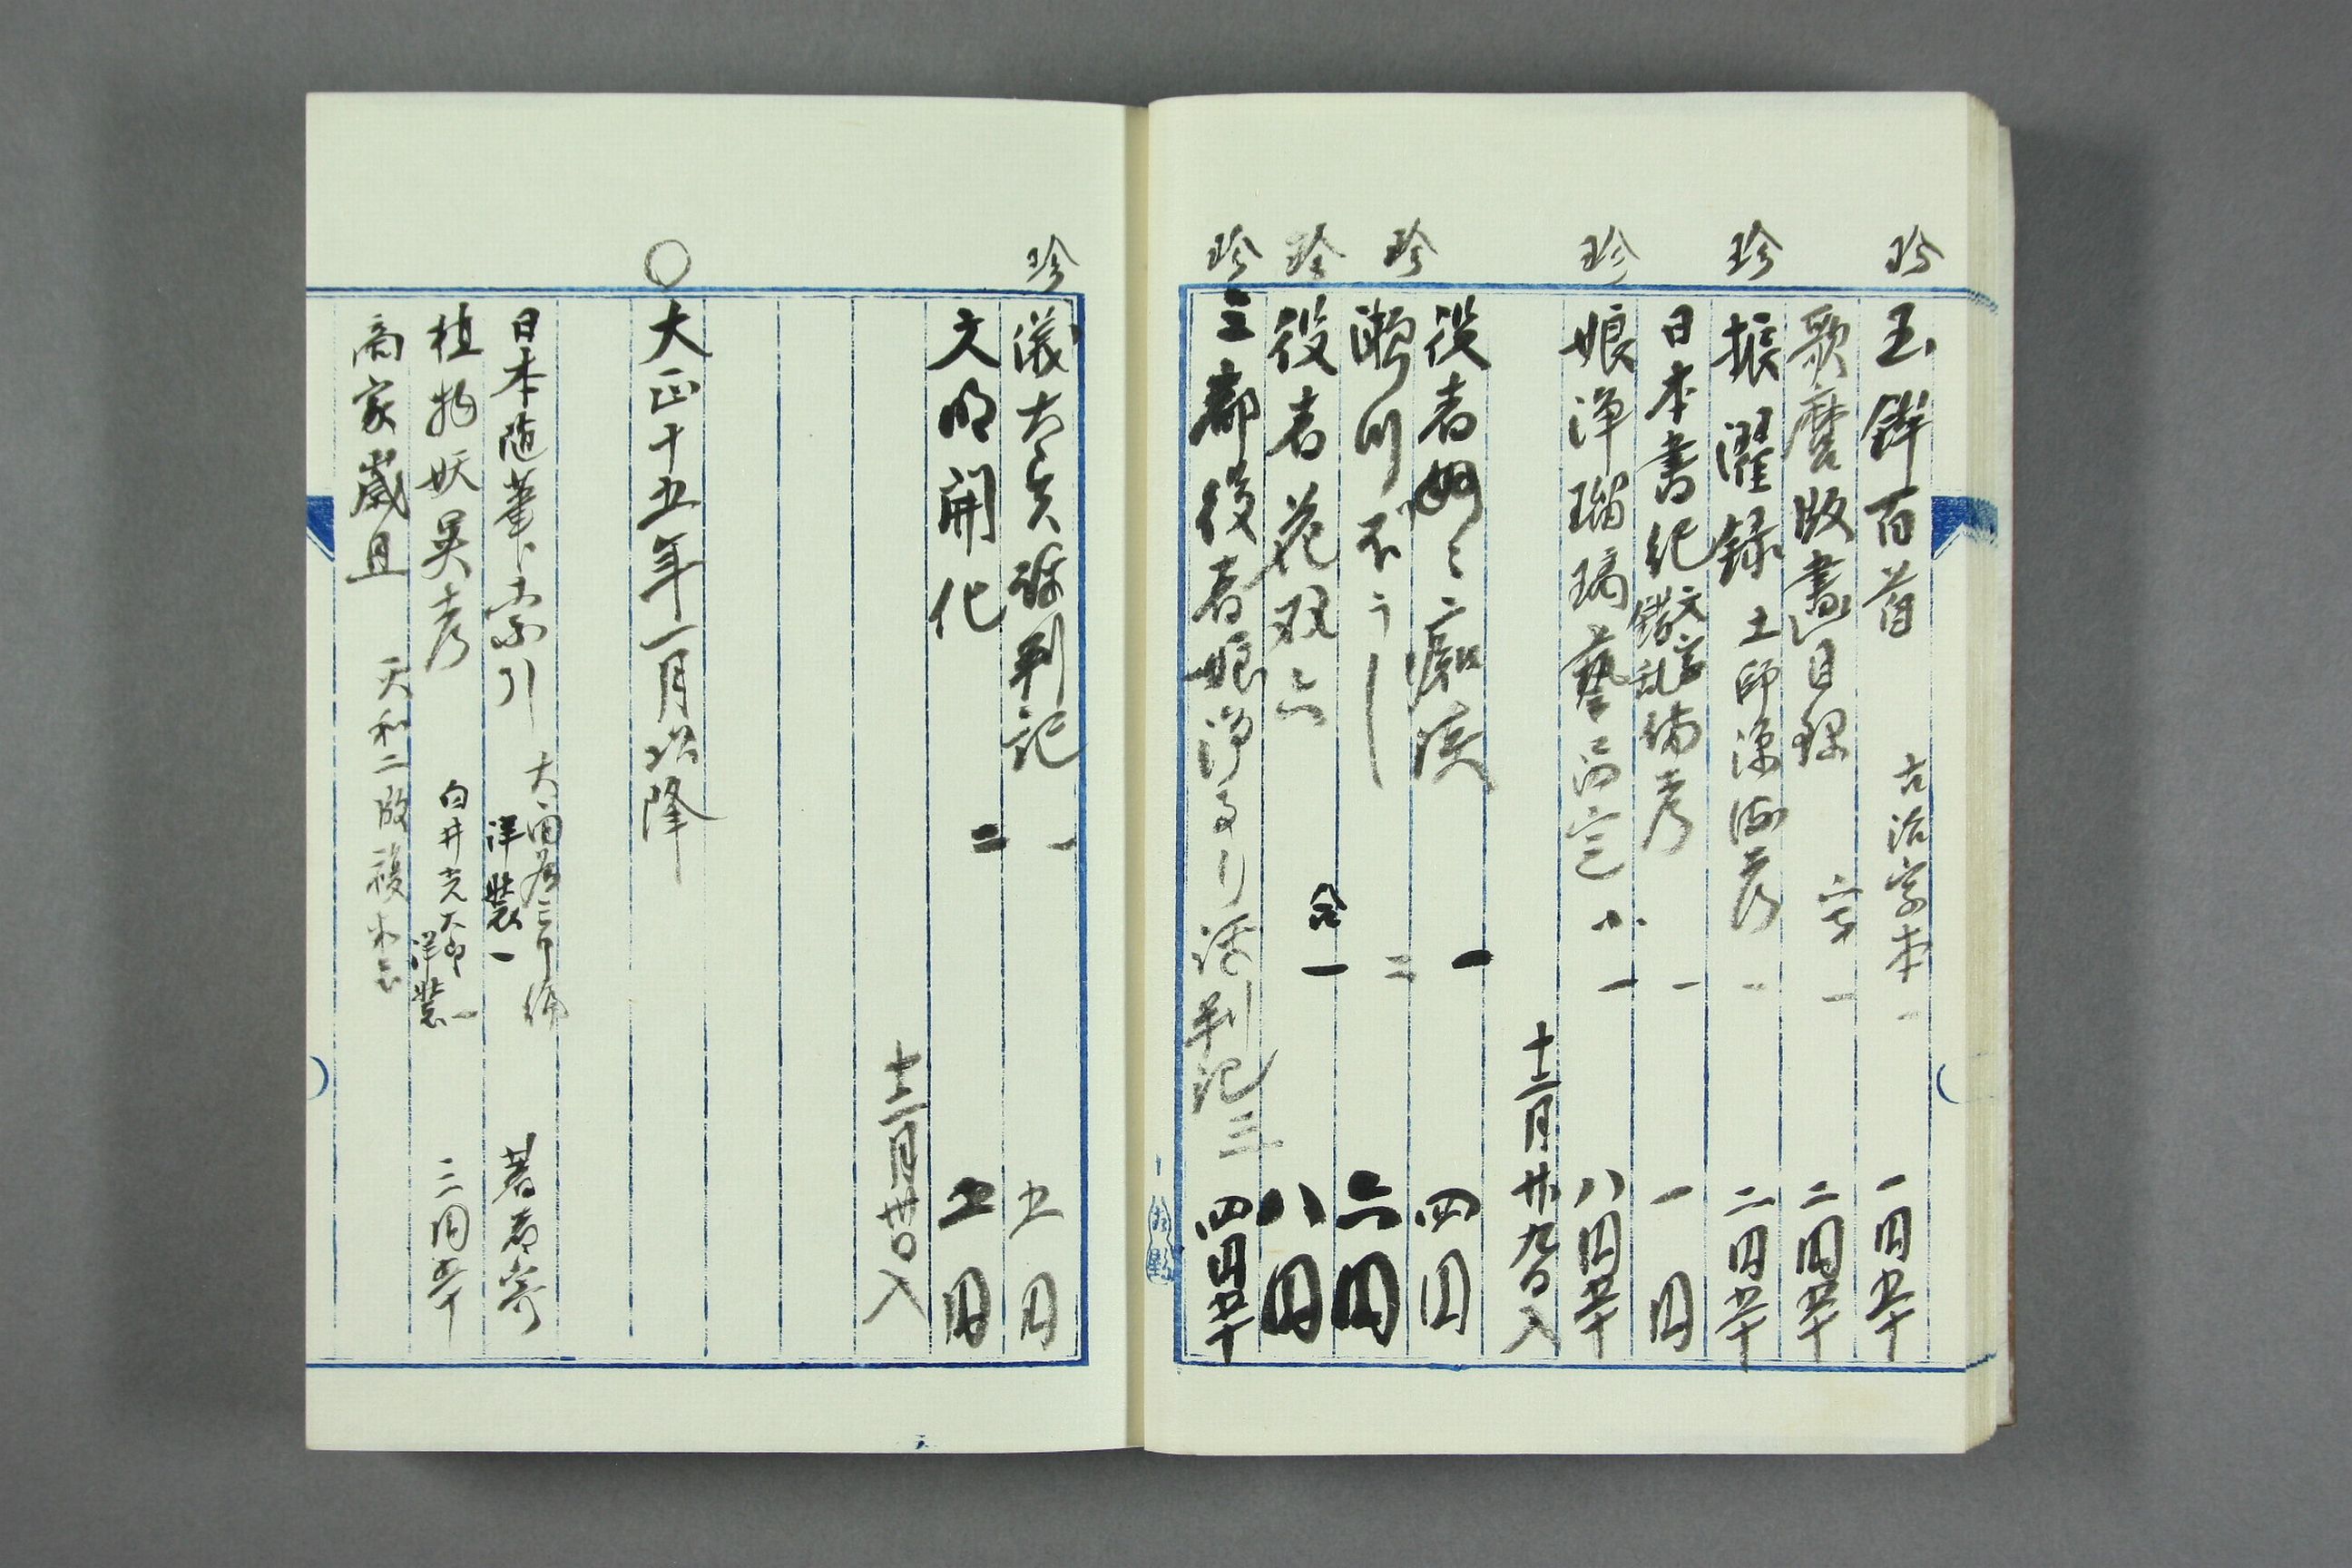 珍 玉鉾百首 古活字本 一 一円五十
歌麿版画目録 一 二円五十
珍 振濯録 土師源海考 一 二円五十
日本書紀 文字錯乱備考 一 一円
珍 娘浄瑠璃藝品定 小 一 八円五十
十二月廿九日入
役者 一 四円
珍 二 六円
珍 役者花双六 合一 八円
珍 三都役者娘浄るり評判記 三 四円五十
珍 儀太夫評判記 一 五円
文明開化 二 五円
十二月卅日入
○ 大正十五年一月以降
日本随筆索引 大田為三郎編 洋装一 著者寄
植物妖異考 白井光太郎 洋装一 三円五十
商家歳旦 天和二版複本